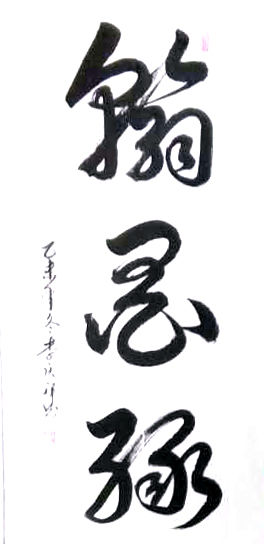 翰墨缘
乙未年冬